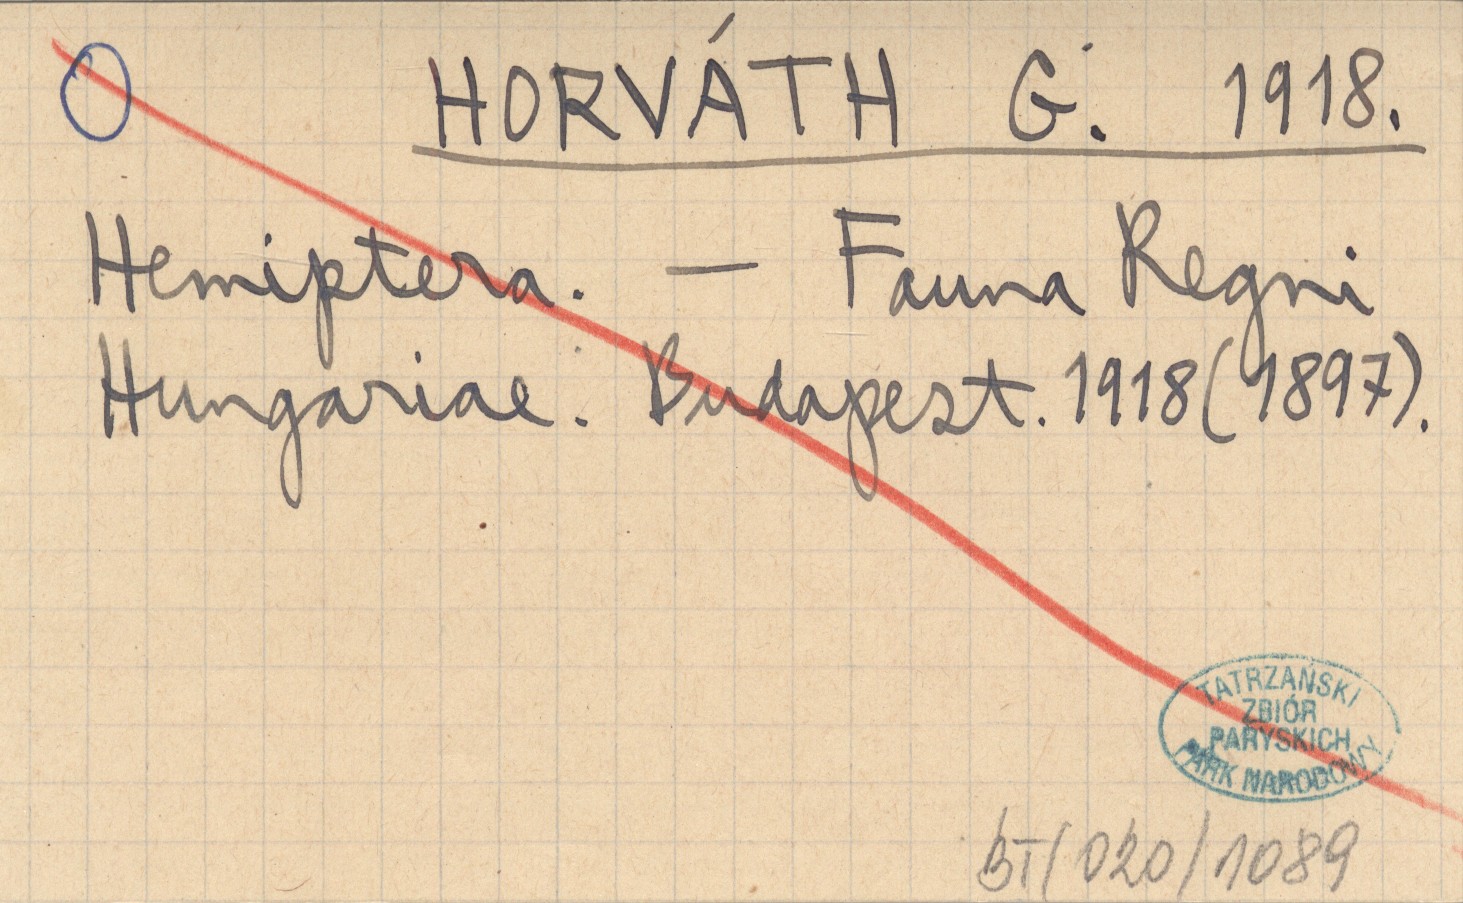 HORVÁTH G. 1918.
Hemiptera. — Fauna Regni
Hungariae. Budapest. 1918 (1897).
TATRZAŃSKI
ZBIÓR
PARYSKICH
PARK NARODOWY
BT/020/1089